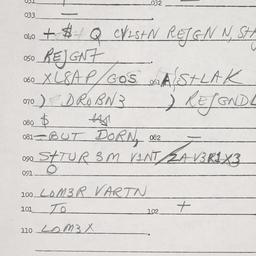 031 032
033 —
040 + $ Q CVLSTN REJGN N, ST
050 REJGNT
060 XLSAP/GOS 061 A STLAK
070 ) DROBN3 ) REJGNDL
080 $
081 –BUT DORN, 082 —
090 S+TUR 3M V1NT/ZA V3R1X3
091 O
100 LOM3R VARTN
101 TO 102 +
110 LOM3X